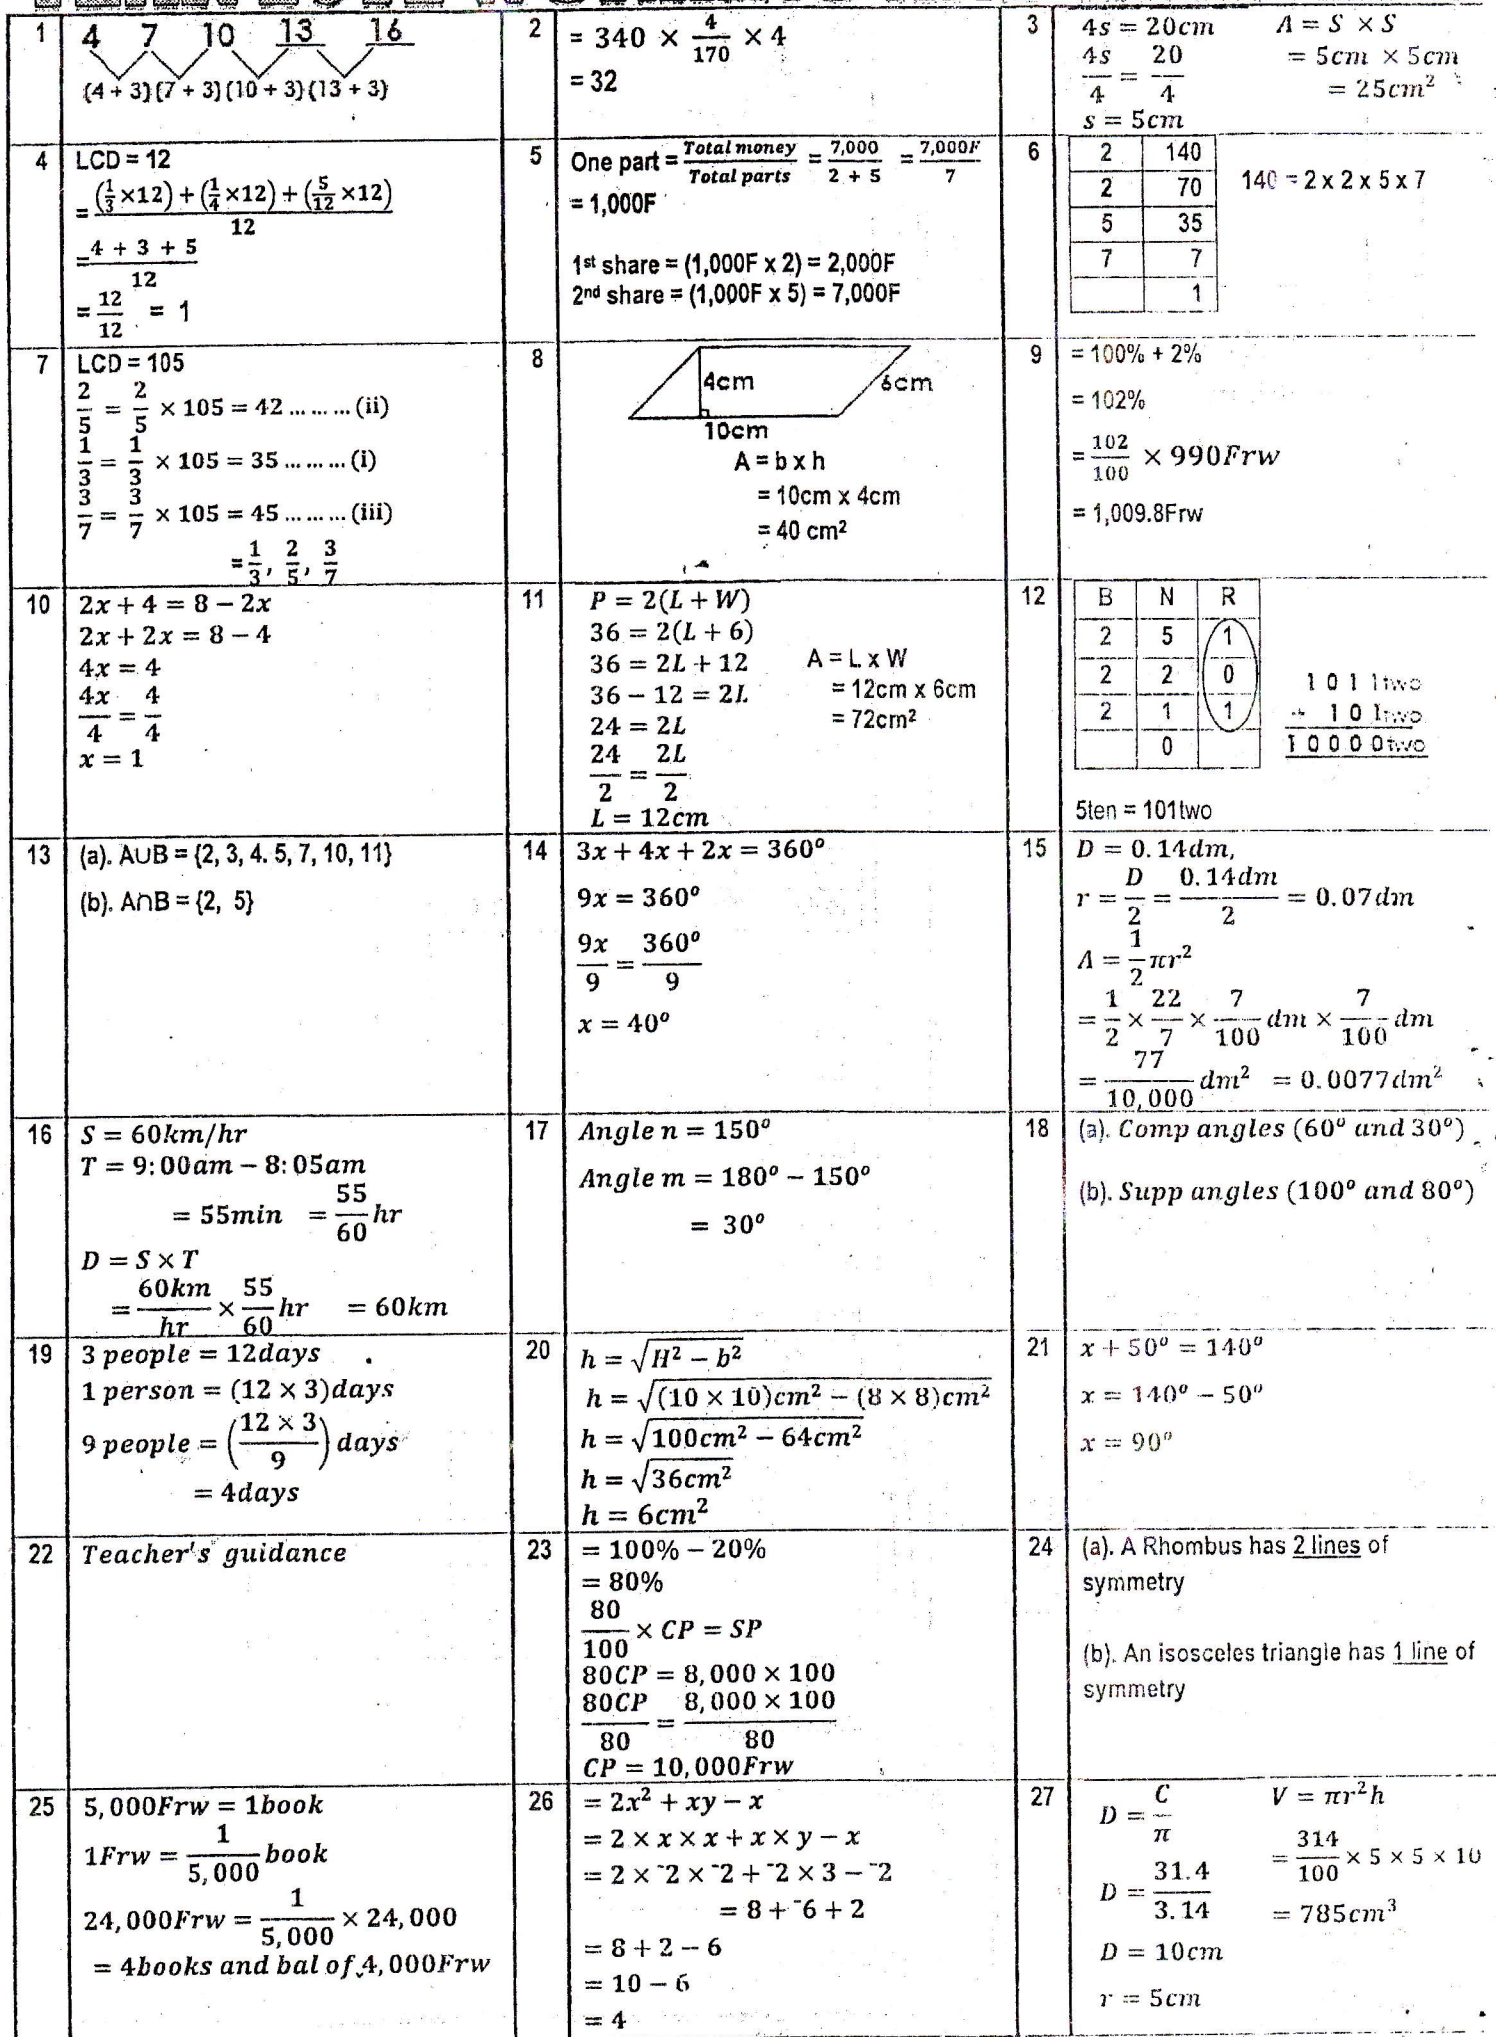 1
4 7 10 13 16
(4 + 3)(7 + 3)(10 + 3)(13 + 3)
2
= 340 × 4/170 × 4
= 32
3
4s = 20cm
4s/4 = 20/4
s = 5cm
A = S × S
= 5cm × 5cm
= 25cm²
4
LCD = 12
= ((1/3 ×12) + (1/4 ×12) + (5/12 ×12))/12
= (4 + 3 + 5)/12
= 12/12 = 1
5
One part = Total money/Total parts = 7,000/(2 + 5) = 7,000F/7
= 1,000F
1st share = (1,000F x 2) = 2,000F
2nd share = (1,000F x 5) = 7,000F
6
2 140
2 70
5 35
7 7
1
140 = 2 x 2 x 5 x 7
7
LCD = 105
2/5 = 2/5 × 105 = 42 ... ... ... (ii)
1/3 = 1/3 × 105 = 35 ... ... ... (i)
3/7 = 3/7 × 105 = 45 ... ... ... (iii)
= 1/3, 2/5, 3/7
8
4cm 6cm
10cm
A = b x h
= 10cm x 4cm
= 40 cm²
9
= 100% + 2%
= 102%
= 102/100 × 990Frw
= 1,009.8Frw
10
2x + 4 = 8 − 2x
2x + 2x = 8 − 4
4x = 4
4x/4 = 4/4
x = 1
11
P = 2(L + W)
36 = 2(L + 6)
36 = 2L + 12
36 − 12 = 2L
24 = 2L
24/2 = 2L/2
L = 12cm
A = L x W
= 12cm x 6cm
= 72cm²
12
B N R
2 5 1
2 2 0
2 1 1
0
1 0 1 1two
+ 1 0 1two
1 0 0 0 0two
5ten = 101two
13
(a). A∪B = {2, 3, 4. 5, 7, 10, 11}
(b). A∩B = {2, 5}
14
3x + 4x + 2x = 360°
9x = 360°
9x/9 = 360°/9
x = 40°
15
D = 0.14dm,
r = D/2 = 0.14dm/2 = 0.07dm
A = 1/2 πr²
= 1/2 × 22/7 × 7/100 dm × 7/100 dm
= 77/10,000 dm² = 0.0077dm²
16
S = 60km/hr
T = 9:00am − 8:05am
= 55min = 55/60 hr
D = S × T
= 60km/hr × 55/60 hr = 60km
17
Angle n = 150°
Angle m = 180° − 150°
= 30°
18
(a). Comp angles (60° and 30°)
(b). Supp angles (100° and 80°)
19
3 people = 12days
1 person = (12 × 3)days
9 people = ((12 × 3)/9) days
= 4days
20
h = √(H² − b²)
h = √((10 × 10)cm² − (8 × 8)cm²)
h = √(100cm² − 64cm²)
h = √(36cm²)
h = 6cm²
21
x + 50° = 140°
x = 140° − 50°
x = 90°
22
Teacher's guidance
23
= 100% − 20%
= 80%
80/100 × CP = SP
80CP = 8,000 × 100
80CP/80 = (8,000 × 100)/80
CP = 10,000Frw
24
(a). A Rhombus has 2 lines of
symmetry
(b). An isosceles triangle has 1 line of
symmetry
25
5,000Frw = 1book
1Frw = 1/5,000 book
24,000Frw = 1/5,000 × 24,000
= 4books and bal of 4,000Frw
26
= 2x² + xy − x
= 2 × x × x + x × y − x
= 2 × ⁻2 × ⁻2 + ⁻2 × 3 − ⁻2
= 8 + ⁻6 + 2
= 8 + 2 − 6
= 10 − 6
= 4
27
D = C/π
D = 31.4/3.14
D = 10cm
r = 5cm
V = πr²h
= 314/100 × 5 × 5 × 10
= 785cm³